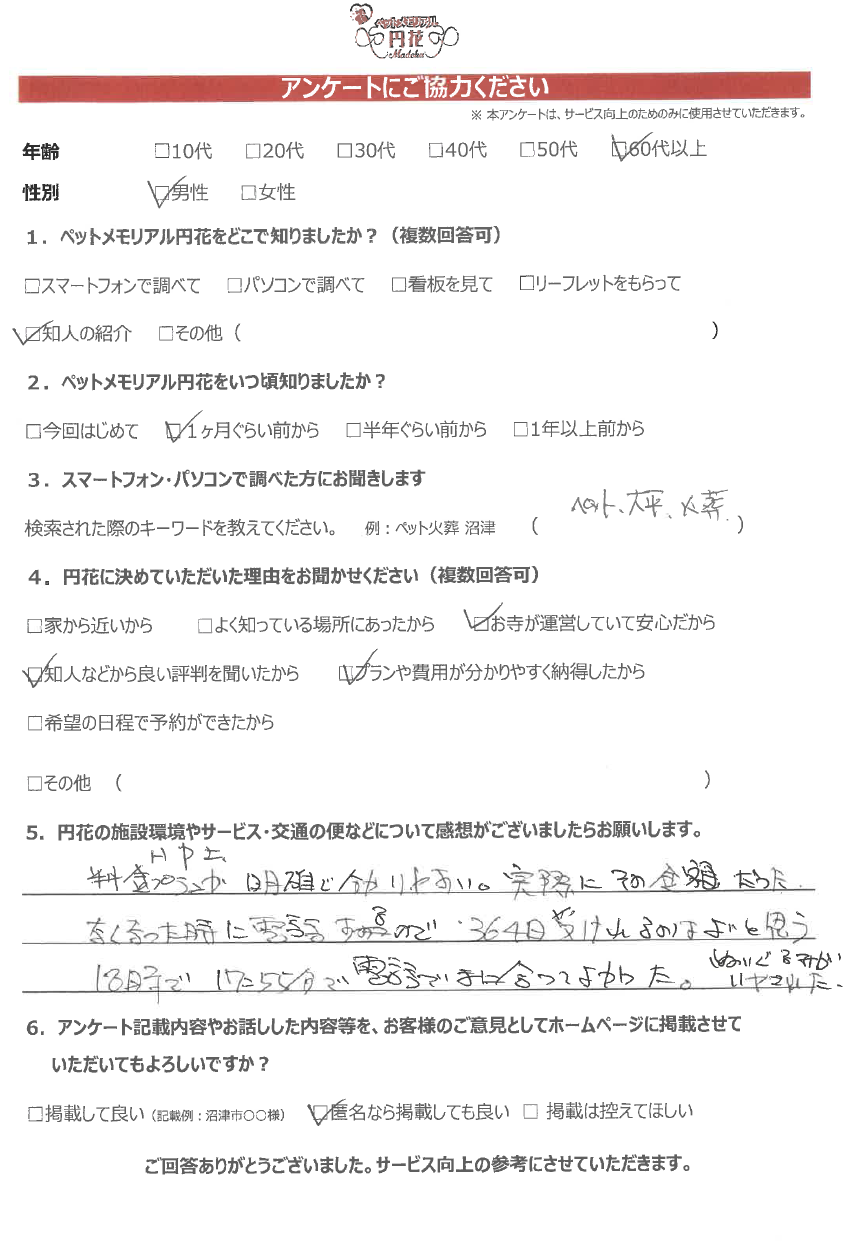 ペットメモリアル
円花
Madoka
アンケートにご協力ください
※ 本アンケートは、サービス向上のためのみに使用させていただきます。
年齢 □10代 □20代 □30代 □40代 □50代 ☑60代以上
性別 ☑男性 □女性
1．ペットメモリアル円花をどこで知りましたか？（複数回答可）
□スマートフォンで調べて □パソコンで調べて □看板を見て □リーフレットをもらって
☑知人の紹介 □その他（ ）
2．ペットメモリアル円花をいつ頃知りましたか？
□今回はじめて ☑1ヶ月ぐらい前から □半年ぐらい前から □1年以上前から
3．スマートフォン・パソコンで調べた方にお聞きします
検索された際のキーワードを教えてください。 例：ペット火葬 沼津 （ ペット、大平、火葬 ）
4．円花に決めていただいた理由をお聞かせください（複数回答可）
□家から近いから □よく知っている場所にあったから ☑お寺が運営していて安心だから
☑知人などから良い評判を聞いたから ☑プランや費用が分かりやすく納得したから
□希望の日程で予約ができたから
□その他 （ ）
5．円花の施設環境やサービス・交通の便などについて感想がございましたらお願いします。
HP上、
料金プランが明確で分かりやすい。実際にその金額だった。
なくなった時に電話するので 364日受けれるのはよいと思う
18時で17:55分で電話でまに合ってよかった。 ぬいぐるみがいやされた。
6．アンケート記載内容やお話しした内容等を、お客様のご意見としてホームページに掲載させて
いただいてもよろしいですか？
□掲載して良い（記載例：沼津市〇〇様） ☑匿名なら掲載しても良い □ 掲載は控えてほしい
ご回答ありがとうございました。サービス向上の参考にさせていただきます。